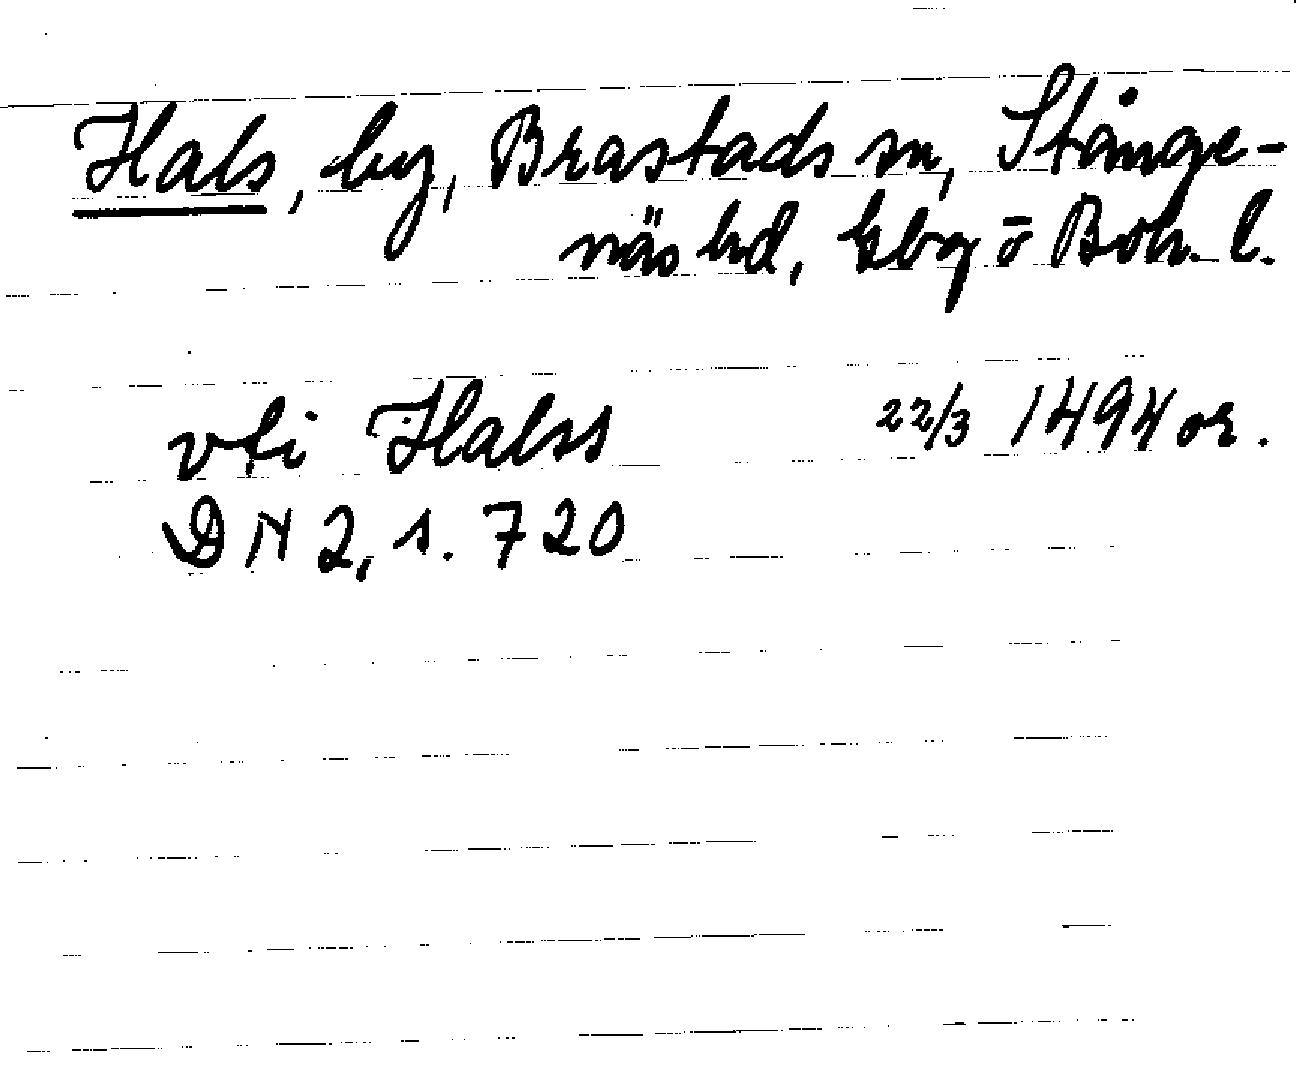 Hals, by, Brastads sn, Stånge-
näs hd, Gbg o Boh. l.
vti Halss 22/3 1494 or.
DN 2, s. 720